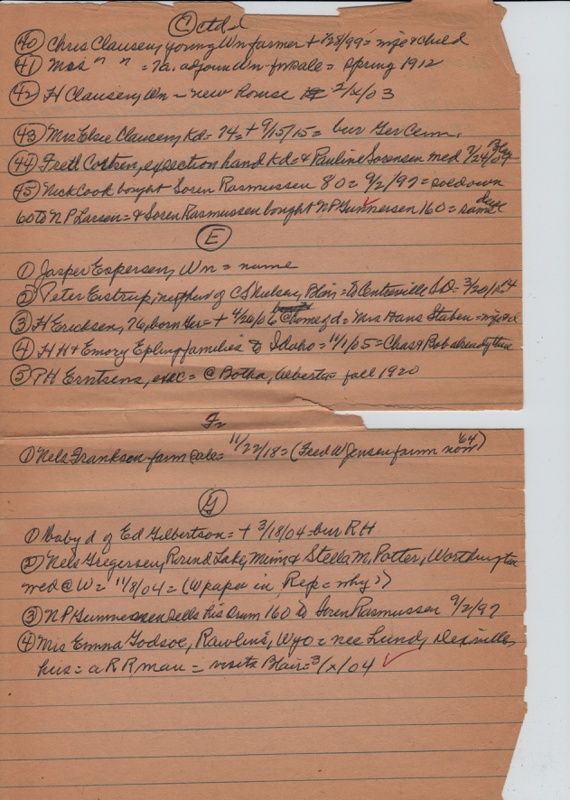 Ⓒ ctd
㊵ Chris Clausen, young Wn farmer + 7/28/99 = wife & child
㊶ Mrs " " = 7a. adjoin Wn - for sale = Spring 1912
㊷ H Clausen, Wn - new house 2/x/03
㊸ Mrs Elsie Clausen, Kd = 74 + 9/15/15 = bur Ger Cem.
㊹ section hand Kd = & Pauline Sorensen med 7/24/07
㊺ Nick Cook bought Soren Rasmussen 80 = 9/2/97 = sold own
60 to N P Larsen = & Soren Rasmussen bought NP Gunnersen 160 = same
Ⓔ
① Jasper Espersen, Wn = name
② Peter Eistrup, of C Skulsen, Blair, = to Centreville S.D. = 3/20/
③ H Ericksen, 76, born Ger = + 4/26/06 @ home of d = Mrs Hans Staben =
④ H H + Emory Epling families to Idaho = 11/1/05 = Chas & Bob already there
⑤ PH Erntsens, = @ Botha, Alberta = fall 1920
F
① Nels Frankson farm sale = 11/22/18 = (Fred W Jensen farm now '64)
Ⓖ
① baby d of Ed Gilbertson = + 3/18/04 = bur R H
② Nels Gregersen, Round Lake, Minn & Stella M. Potter, Worthington
wed @ W = 11/8/04 = (W paper in Rep = why?)
③ NP Gunnersen sells his Orum 160 to Soren Rasmussen 9/2/97
④ Mrs Emma Godsoe, Rawlins, Wyo = nee Lund,
hus = a R R man = visits Blair = 3/x/04 ✓